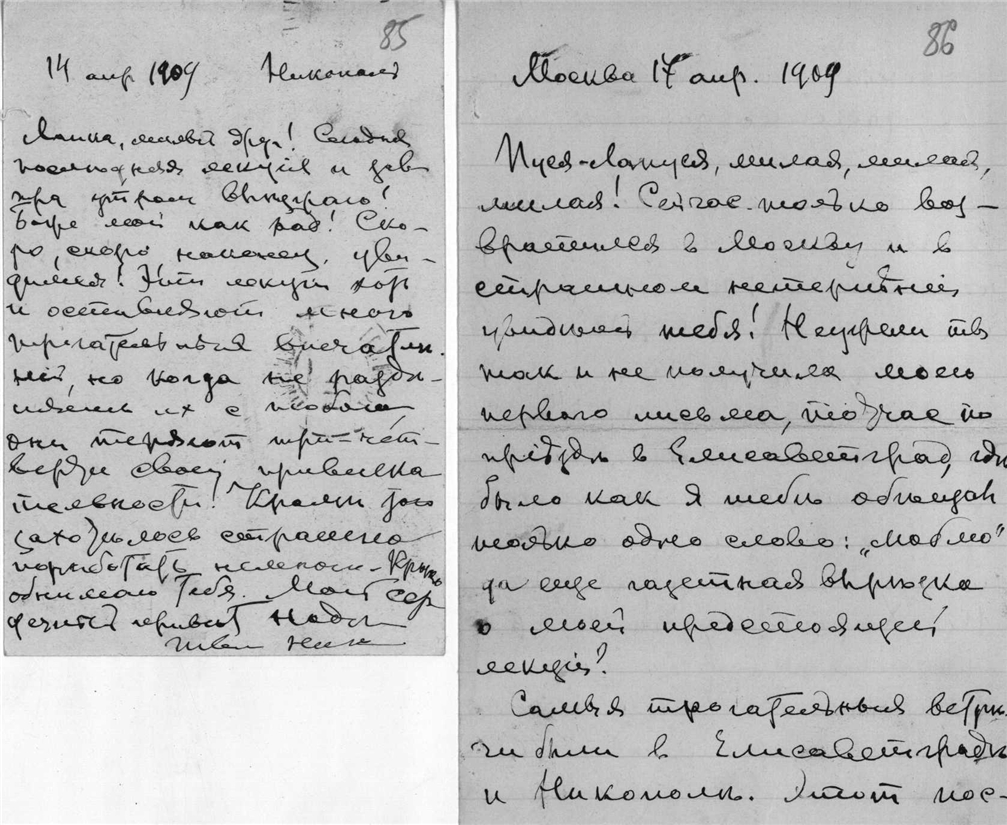 85
14 апр 1909 Никополь
Лапка, милый друг! Сегодня
последняя лекция и зав-
тра утром выезжаю!
Боже мой как рад! Ско-
ро, скоро наконец, уви-
димся! Эти лекции хотя
и оставляют много
трогательныя впечатлѣ-
ній, но когда не разде-
лишь их с тобою,
они теряют три-чет-
верти своей привлека
тельности! Кроме того
захотѣлось страшно
поработать немного. Крепко
обнимаю тебя. Мой сер
дечный привет Наде
Твой
86
Москва 17 апр. 1909
Пуся-Лапуся, милая, милая,
милая! Сейчас только воз-
вратился в Москву и в
страшном нетерпѣніи
увидать тебя! Неужели ты
так и не получила моего
первого письма, тотчас по
пріѣзде в Елисаветград, где
было как я тебе обещал
только одно слово: „люблю"
да еще газетная вырѣзка
о моей предстоящей
лекціи?
Самыя трогательныя встре-
чи были в Елисаветградѣ
и Никополѣ. Этот пос-